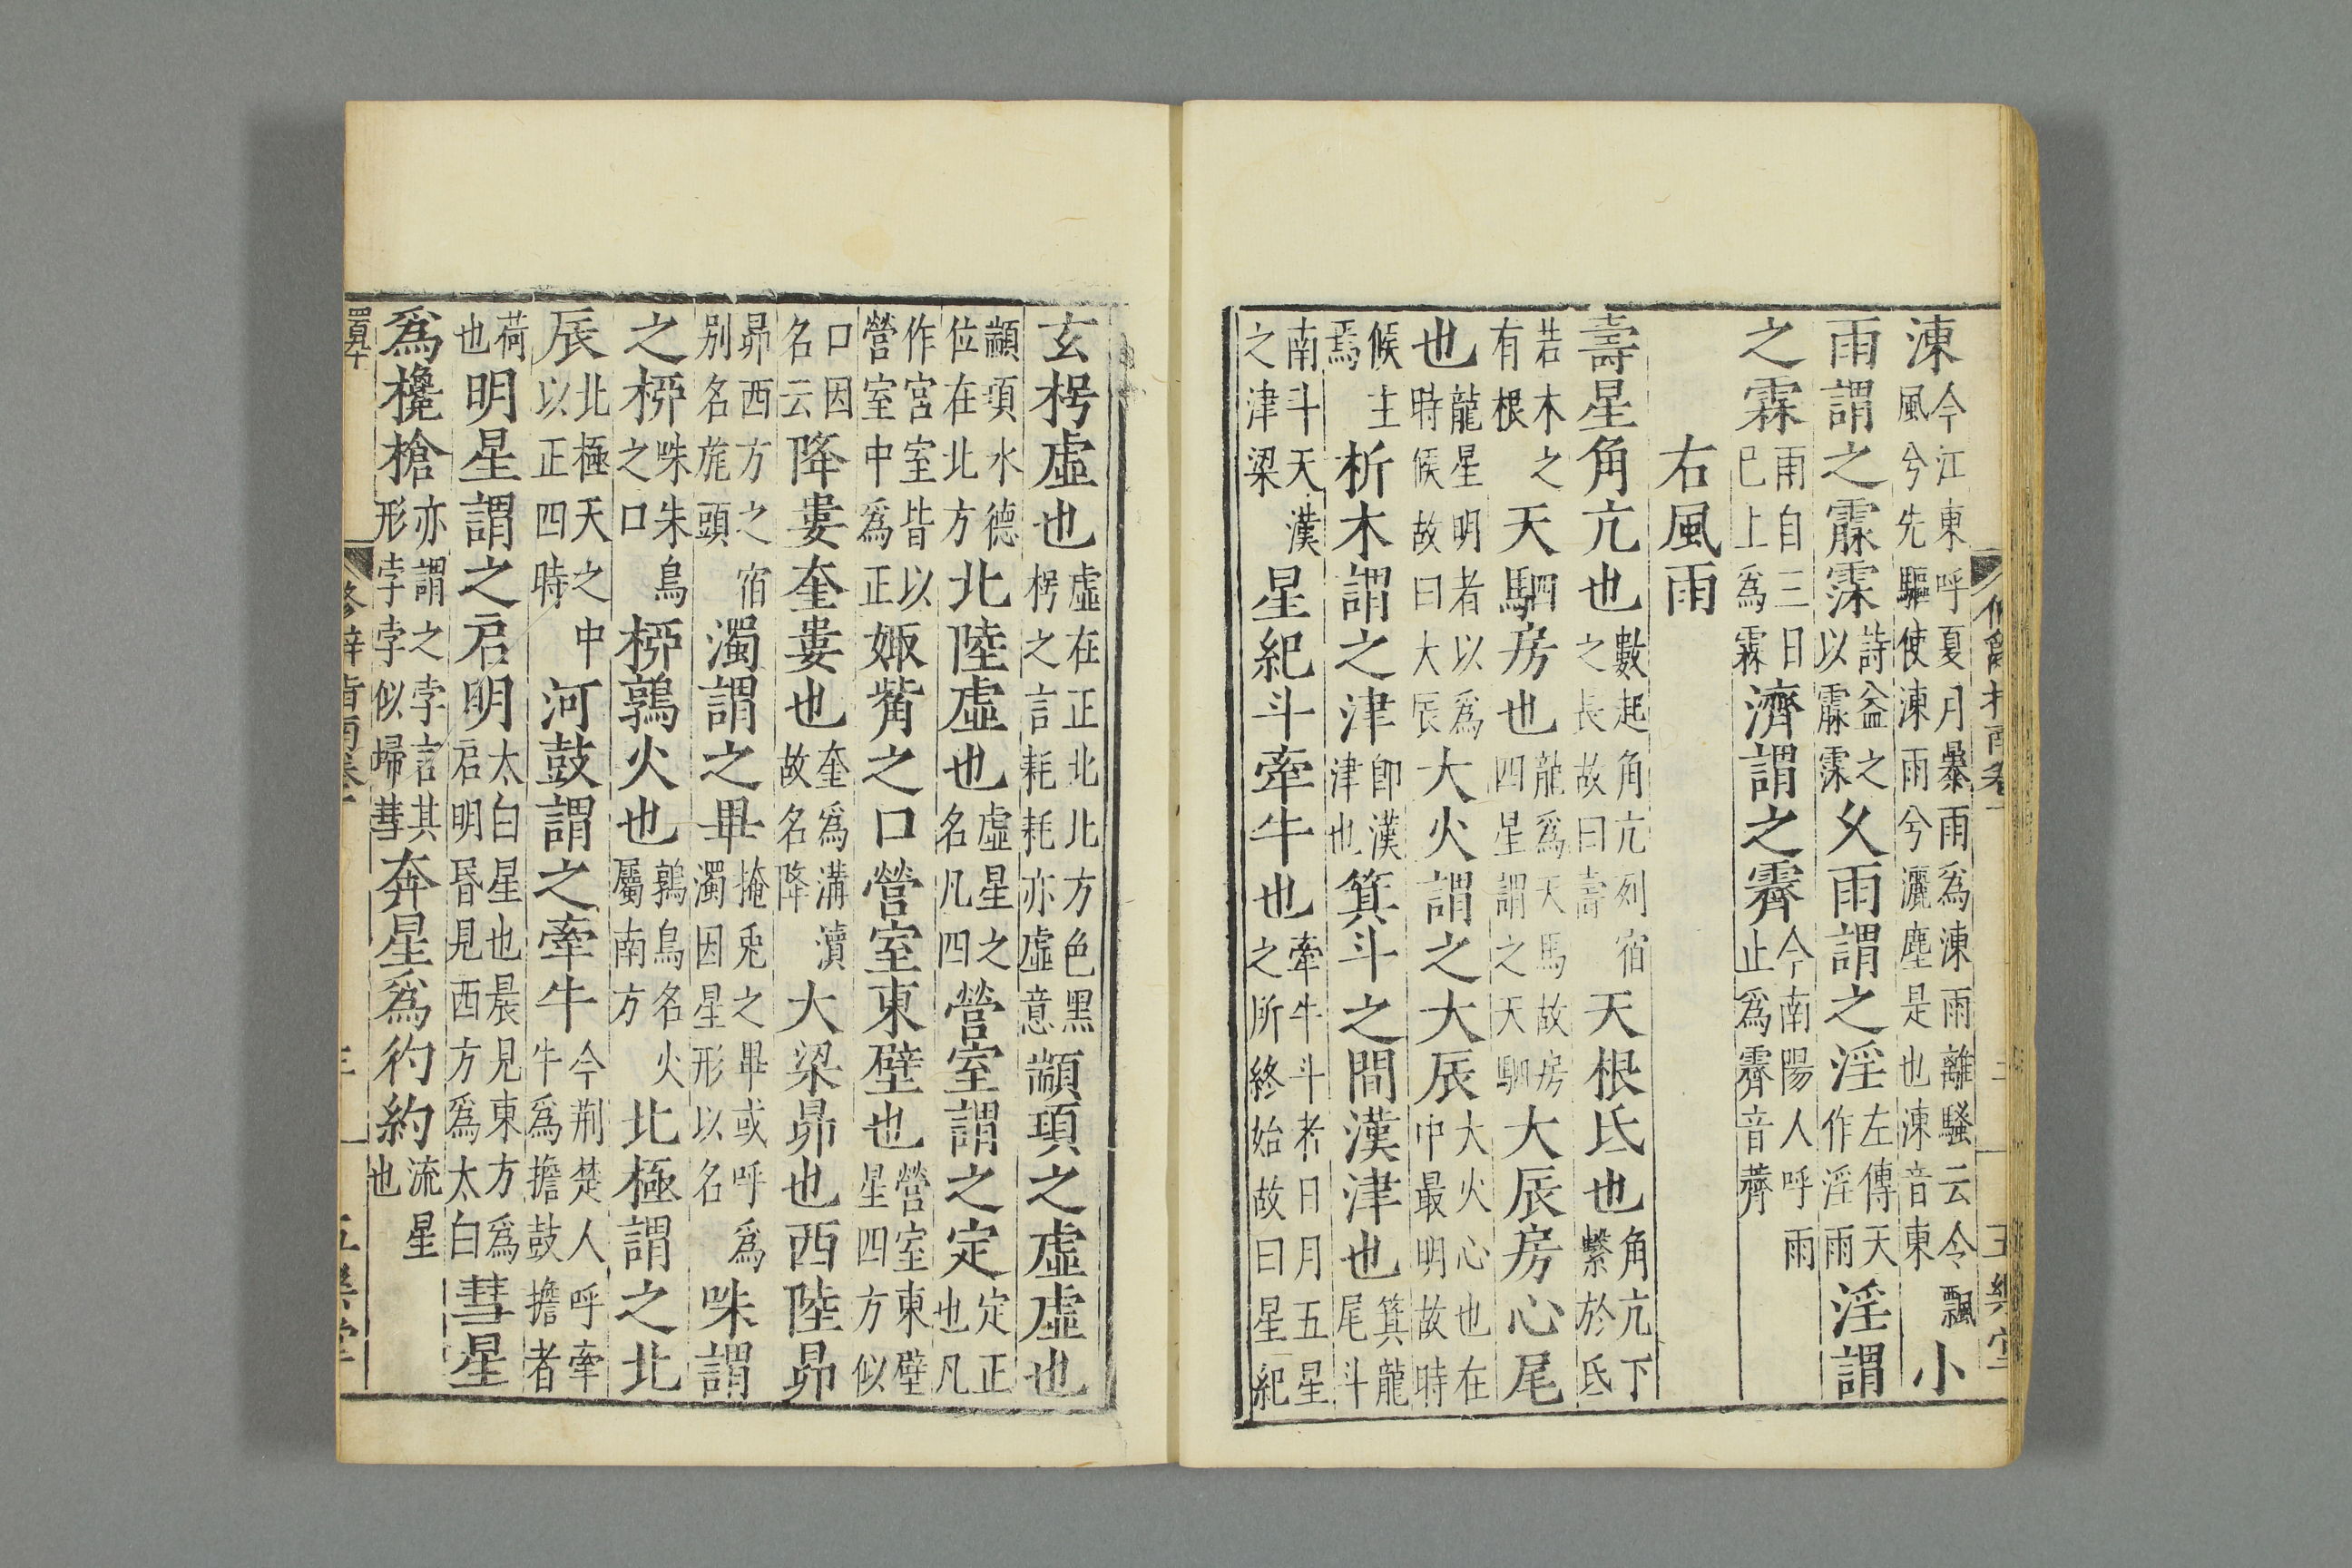 涷今江東呼夏月暴雨爲涷雨離騷云令飄風兮先驅使涷雨兮灑塵是也涷音東小
雨謂之霡霂詩益之以霡霂久雨謂之淫左傳天作淫雨淫謂
之霖雨自三日已上爲霖濟謂之霽今南陽人呼雨止爲霽音薺
右風雨
壽星角亢也數起角亢列宿之長故曰壽天根氐也角亢下繫於氐
若木之有根天駟房也龍爲天馬故房四星謂之天駟大辰房心尾
也龍星明者以爲時候故曰大辰大火謂之大辰大火心也在中最明故時
候主焉析木謂之津卽漢津也箕斗之間漢津也箕龍尾斗
南斗天漢之津梁星紀斗牽牛也牽牛斗者日月五星之所終始故曰星紀
玄枵虛也虛在正北北方色黑枵之言耗耗亦虛意顓頊之虛虛也
顓頊水德位在北方北陸虛也虛星之名凡四營室謂之定定正也凡
作宮室皆以營室中爲正娵觜之口營室東壁也營室東壁星四方似
口因名云降婁奎婁也奎爲溝瀆故名降大梁昴也西陸昴
昴西方之宿别名旄頭濁謂之畢掩兎之畢或呼爲濁因星形以名咮謂
之柳咮朱鳥之口柳鶉火也鶉鳥名火屬南方北極謂之北
辰北極天之中以正四時河鼓謂之牽牛今荆楚人呼牽牛爲擔鼓擔者
荷也明星謂之启明太白星也晨見東方爲启明昏見西方爲太白彗星
爲欃槍亦謂之孛言其形孛孛似埽彗奔星爲彴約流星也